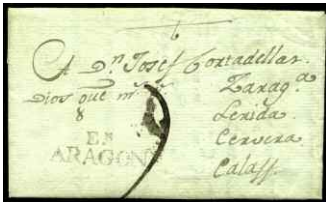 6
A Dn Josef Cortadellas
Dios gue ms as
Zaraga
8
Lerida
Cervera
EN
ARAGON
Calaff.